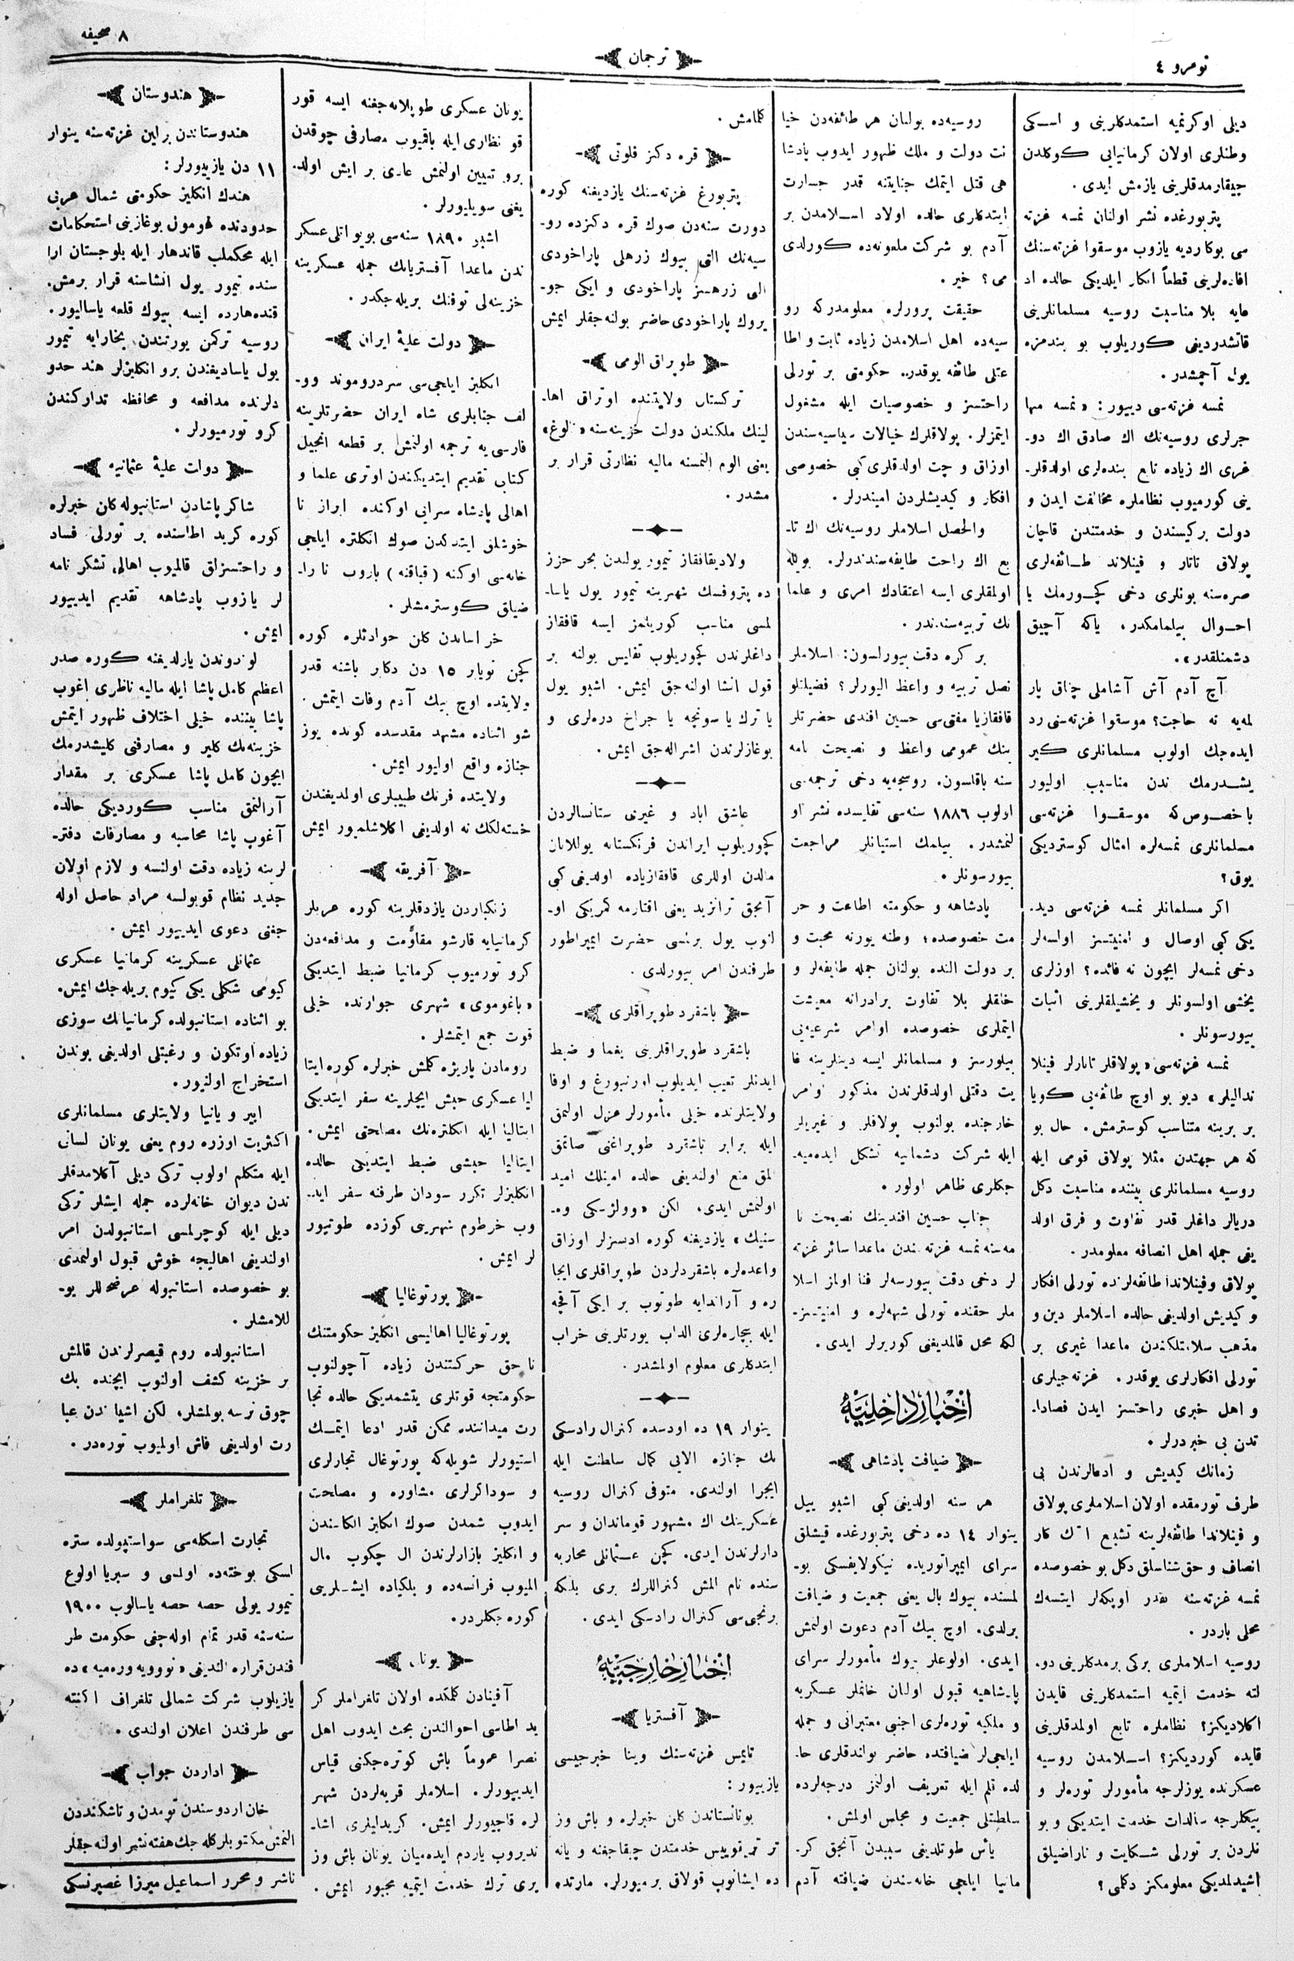 نومرو ٤
ترجمان
٨ صحیفه
دیلی اوكرنمیه استمدكلرینی و اسكی
وطنلری اولان كرمانیایی كوكلدن
چیقارمدقلرینی یازمش ایدی.
پتربورغده نشر اولنان نمسه غزته
سی بوكا ردیه یازوب موسقوا غزته‌سنك
افاده‌لرینی قطعاً انكار ایلدیكی حالده اد
عایه بلا مناسبت روسیه مسلمانلرینی
قاتشدردیغی كوریلوب بو بندمزه
یول آچمشدر.
نمسه غزته‌سی دییور: «نمسه مها
جرلری روسیه‌نك اك صادق اك دو-
غری اك زیاده تابع بنده‌لری اولدقلر-
ینی كورمیوب نظاملره مخالفت ایدن و
دولت بركیسندن و خدمتندن قاچان
پولاق تاتار و فینلاند طائفه‌لری
صره‌سنه بونلری دخی كچورمك یا
احوال بیلمامكدر، یاكه آچیق
دشمنلقدر».
آچ آدم آش آشاملی چناق یار
لمه‌یه نه حاجت؟ موسقوا غزته‌سی رد
ایده‌جك اولوب مسلمانلری كیر
یشدرمك ندن مناسب اولیور
باخصوص‌كه موسقوا غزته‌سی
مسلمانلری نمسه‌لره امثال كوستردیكی
یوق؟
اكر مسلمانلر نمسه غزته‌سی دید.
یكی كبی اوصال و امنیتسز اولسه‌لر
دخی نمسه‌لر ایچون نه فائده؟ اوزلری
یخشی اولسونلر و یخشیلقلرینی اثبات
بیورسونلر.
نمسه غزته‌سی «پولاقلر تاتارلر فینلا
ندالیلر» دیو بو اوچ طائفه‌یی كویا
بر برینه متناسب كوسترمش. حال بو
كه هر جهتدن مثلا پولاق قومی ایله
روسیه مسلمانلری بیننده مناسبت دكل
دریالر داغلر قدر تفاوت و فرق اولد
یغی جمله اهل انصافه معلومدر.
پولاق وفینلاندا طائفه‌لرنده تورلی افكار
و كیدیش اولدیغی حالده اسلاملر دین و
مذهب سلامتلكندن ماعدا غیری بر
تورلی افكارلری یوقدر. غزته‌جیلری
و اهل خبری راحتسز ایدن فصادا.
تدن بی خبردرلر.
زمانك كیدیش و ادعالرندن بی
طرف تورمقده اولان اسلاملری پولاق
و فینلاندا طائفه‌لرینه تشبیع اتك كار
انصاف و حق‌شناسلق دكل بو خصوصده
نمسه غزته‌سنه نقدر اوپكه‌لر ایتسه‌ك
محلی باردر.
روسیه اسلاملری بركی برمدكلرینی دو.
لته خدمت ایتمیه استمدكلرینی قایدن
اكلادیكز؟ نظاملره تابع اولمدقلرینی
قایده كوردیكز؟ اسلامدن روسیه
عسكرنده یوزلرجه مأمورلر توره‌لر و
بیكلرجه سالدات خدمت ایتدیكی و بو
نلردن بر تورلی شكایت و ناراضیلق
اشیدلمدیكی معلومكز دكلمی؟
روسیه‌ده بولنان هر طائفه‌دن خیا
نت دولت و ملك ظهور ایدوب پادشا
هی قتل ایتمك جنایتنه قدر جسارت
ایتدكلری حالده اولاد اسلامدن بر
آدم بو شركت ملعونه‌ده كورلدی
می؟ خیر.
حقیقت پرورلره معلومدركه رو
سیه‌ده اهل اسلامدن زیاده ثابت و اطا
عتلی طائفه یوقدر.. حكومتی بر تورلی
راحتسز و خصوصیات ایله مشغول
ایتمزلر. پولاقلرك خیالات سیاسیه‌سندن
اوزاق و چت اولدقلری كبی خصوصی
افكار و كیدیشلردن امیندرلر.
والحصل اسلاملر روسیه‌نك اك تا-
بع اك راحت طایفه‌سندندرلر. بویله
اولمقلری ایسه اعتقادك امری و علما
نك تربیه‌سندندر.
بر كره دقت بیورلسون: اسلاملر
نصل تربیه و واعظ الیورلر؟ فضیلتلو
قافقازیا مفتی‌سی حسین افندی حضرتلر
ینك عمومی واعظ و نصیحت نامه
سنه باقلسون. روسجه‌یه دخی ترجمه‌سی
اولوب ١٨٨٦ سنه‌سی تفلیسده نشر او
لنمشدر. بیلمك استیانلر مراجعت
بیورسونلر.
پادشاهه و حكومته اطاعت و حر
مت خصوصده؛ وطنه یورنه محبت و
بر دولت النده بولنان جمله طایفه‌لر و
خلقلر بلا تفاوت برادرانه معیشت
ایتملری خصوصده اوامر شرعیه‌یی
بیلورسز و مسلمانلر ایسه دینلرینه غا
یت دقتلی اولدقلرندن مذكور اوامر
خارجنده بولنوب پولاقلر و غیریلر
ایله شركت دشمانیه تشكل ایده‌میه.
جكلری ظاهر اولور.
جناب حسین افندینك نصیحت نا
مه‌سنه نمسه غزته‌سندن ماعدا سائر غزته
لر دخی دقت بیورسه‌لر فنا اولماز اسلا
ملر حقنده تورلی شبهه‌لره و امنیتسز-
لكه محل قالمدیغی كوریرلر ایدی.
اخبار داخلیه
ضیافت پادشاهی
هر سنه اولدیغی كبی اشبو ییل
ینوار ١٤ ده دخی پتربورغده قیشلق
سرای ایمپراتوریده نیكولایفسكی بو-
لمسنده بیوك بال یعنی جمعیت و ضیافت
برلدی. اوچ بیك آدم دعوت اولنمش
ایدی. اولوغلر بیوك مأمورلر سرای
پادشاهیه قبول اولنان خانملر عسكریه
و ملكیه توره‌لری اجنبی معتبرانی و جمله
ایاچی‌لر ضیافتده حاضر بولندقلری حا.
لده قلم ایله تعریف اولنمز درجه‌لرده
سلطنتلی جمعیت و مجلس اولمش.
یأس طوتلدیغی سببدن آنجق كر.
مانیا ایلچی خانه‌سندن ضیافته آدم
كلمامش.
قره دكز فلوتی
پتربورغ غزته‌سنك یازدیغنه كوره
دورت سنه‌دن صوك قره دكزده رو-
سیه‌نك التی بیوك زرهلی پاراخودی
الی زرهسز پاراخودی و ایكی جو-
یروك پاراخودی حاضر بولنه‌جقلر ایمش
طوپراق الومی
تركستان ولایتنده اوتراق اها-
لینك ملكندن دولت خزینه‌سنه «نلوغ»
یعنی الوم النمسنه مالیه نظارتی قرار بر
مشدر.
ولادیقافقاز تیمور یولندن بحر خزز
ده پتروفسك شهرینه تیمور یول یاسا-
لمسی مناسب كورینمز ایسه قافقاز
داغلرندن كچوریلوب تفلیس یولنه بر
قول انشا اولنه‌جق ایمش. اشبو یول
یا ترك یا سونچه یا جراخ دره‌لری و
بوغازلرندن اشراله‌جق ایمش.
عاشق اباد و غیری ستانسالردن
كچوریلوب ایراندن فرنكستانه یوللانان
مالدن اوللری قافقازیاده اولدیغی كبی
آنجق ترانزید یعنی اقتارمه كمركی او.
لنوب یول برلمسی حضرت ایمپراطور
طرفندن امر بیورلدی.
باشقرد طوپراقلری
باشقرد طوپراقلرینی یغما و ضبط
ایدنلر تعیب ایدیلوب اورنبورغ و اوفا
ولایتلرنده خیلی مأمورلر عزل اولنمق
ایله برابر باشقرد طوپراغنی صاتمق
المق منع اولندیغی حالده امینلك امید
اولنمش ایدی. لكن «وولژسكی وه-
ستنیك» یازدیغنه كوره ادبسزلر اوزاق
واعده‌لره باشقردلردن طوپراقلری ایجا
ره و آراندایه طوتوب بر ایكی آقچه
ایله بیچاره‌لری الداب یورتلرینی خراب
ایتدكلری معلوم اولمشدر.
ینوار ١٩ ده اودسده كنرال رادسكی
نك جنازه الایی كمال سلطنت ایله
ایجرا اولندی. متوفی كنرال روسیه
عسكرینك اك مشهور قوماندان و سر
دارلرندن ایدی. كچن عثمانلی محاربه
سنده نام المش كنراللرك بری بلكه
برنجی‌سی كنرال رادسكی ایدی.
اخبار خارجیه
آفستریا
تایمس غزته‌سنك وینا خبرجیسی
یازییور:
یونانستاندن كلن خبرلره و باش وز
تر تمریقوپیس خدمتدن چیقاجغنه و یانه
ده ایشانوب قولاق برمیورلر. مارتده
یونان عسكری طوپلانه‌جغنه ایسه قور
قو نظاری ایله باقیوب مصارفی چوقدن
برو تعیین اولنمش عادی بر ایش اولد.
یغنی سویلیورلر.
اشبو ١٨٩٠ سنه‌سی بوبوانلی عسكر
ندن ماعدا آفستریانك جمله عسكرینه
خزینه‌لی توفنك بریله‌جكدر.
دولت علیهٔ ایران
انكلیز ایلچی‌سی سردروموند وو-
لف جنابلری شاه ایران حضرتلرینه
فارسی‌یه ترجمه اولنمش بر قطعه انجیل
كتابی تقدیم ایتدیكندن اوتری علما و
اهالی پادشاه سرایی اوكنده ابراز نا
خوشلق ایتدكدن صوك انكلتره ایلچی
خانه‌سی اوكنه (قپاقنه) باروب نا را-
ضیلق كوسترمشلر.
خراساندن كلن حوادثلره كوره
كچن نویابر ١٥ دن دكابر باشنه قدر
ولایتده اوچ بیك آدم وفات ایتمش.
شو اثناده مشهد مقدسده كونده یوز
جنازه واقع اولیور ایمش.
ولایتده فرنك طبیبلری اولمدیغندن
خسته‌لك نه اولدیغی اكلاشلمیور ایمش
آفریقه
زنكباردن یازدقلرینه كوره عربلر
كرمانیایه قارشو مقاومت و مدافعه‌دن
كرو تورمیوب كرمانیا ضبط ایتدیكی
«باغوموی» شهری جوارنده خیلی
قوت جمع ایتمشلر.
رومادن پاریژه كلمش خبرلره كوره ایتا
لیا عسكری حبش ایچلرینه سفر ایتدیكی
ایتالیا ایله انكلتره‌نك مصلحتی ایمش.
ایتالیا حبشی ضبط ایتدیكی حالده
انكلیزلر تكرر سودان طرفنه سفر اید-
وب خرطوم شهرینی كوزده طوتیور
لر ایمش.
پورتوغالیا
پورتوغالیا اهالیسی انكلیز حكومتنك
نا حق حركتندن زیاده آچولنوب
حكومتجه قوتلری یتشمدیكی حالده تجا
رت میداننده ممكن قدر ادعا ایتمك
استیورلر شویله‌كه پورتوغال تجارلری
و سوداكرلری مشاوره و مصلحت
ایدوب شمدن صوك انكلیز انكلتسندن
و انكلیز بازارلرندن ال چكوب مال
المیوب فرانسه‌ده و بلكیاده ایشلرینی
كوره‌جكلردر.
یونان
آفینادن كلمكده اولان تلغراملر كر
ید اطاسی احوالندن بحث ایدوب اهل
نصرا عموماً باش كوتره‌جكنی قیاس
ایدییورلر. اسلاملر قریه‌لردن شهر
لره قاچیورلر ایمش. كریدلیلری اشا-
ندیروب یاردم ایده‌میان یونان باش وز
یری ترك خدمت ایتمیه مجبور ایمش.
هندوستان
هندوستاندن برلین غزته‌سنه ینوار
١١ دن یازییورلر:
هندك انكلیز حكومتی شمال غربی
حدودنده لهومول بوغازینی استحكامات
ایله محكملب قاندهار ایله بلوجستان ارا
سنده تیمور یول انشاسنه قرار برمش.
قنده‌هارده ایسه بیوك قلعه یاسالیور.
روسیه تركمن یورتندن بخارایه تیمور
یول یاسادیغندن برو انكلیزلر هند حدو
دلرنده مدافعه و محافظه تداركندن
كرو تورمیورلر.
دولت علیهٔ عثمانیه
شاكر پاشادن استانبوله كلن خبرلره
كوره كرید اطاسنده بر تورلی فساد
و راحتسزلق قالمیوب اهالی تشكر نامه
لر یازوب پادشاهه تقدیم ایدییور
ایمش.
لوندوندن یازلدیغنه كوره صدر
اعظم كامل پاشا ایله مالیه ناظری اغوب
پاشا بیننده خیلی اختلاف ظهور ایتمش
خزینه‌نك كلیر و مصارفنی كلیشدرمك
ایچون كامل پاشا عسكری بر مقدار
آزالتمق مناسب كوردیكی حالده
آغوپ پاشا محاسبه و مصارفات دفتر-
لرینه زیاده دقت اولنسه و لازم اولان
جدید نظام قویولسه مراد حاصل اوله
جغنی دعوی ایدییور ایمش.
عثمانلی عسكرینه كرمانیا عسكری
كیومی شكلی یكی كیوم بریله‌جك ایمش.
بو اثناده استانبولده كرمانیانك سوزی
زیاده اوتكون و رغبتلی اولدیغی بوندن
استخراج اولنیور.
ایپر و یانیا ولایتلری مسلمانلری
اكثریت اوزره روم یعنی یونان لسانی
ایله متكلم اولوب تركی دیلی آكلامدقلر
ندن دیوان خانه‌لرده جمله ایشلر تركی
دیلی ایله كوچرلمسی استانبولدن امر
اولندیغی اهالیجه خوش قبول اولنمدی
بو خصوصده استانبوله عرضحاللر یو-
للامشلر.
استانبولده روم قیصرلرندن قالمش
بر خزینه كشف اولنوب ایچنده بك
چوق نرسه بولمشلر. لكن اشیا ندن عبا
رت اولدیغی فاش اولمیوب توره‌در.
تلغراملر
تجارت اسكله‌سی سواستپولده ستره
لسكی بوخته‌ده اولمسی و سبریا اولوغ
تیمور یولی حصه حصه یاسالوب ١٩٠٠
سنه‌سنه قدر تمام اوله‌جغی حكومت طر
فندن قراره الندیغی «نوویه وره‌میه» ده
یازیلوب شركت شمالی تلغراف اكنته
سی طرفندن اعلان اولندی.
اداردن جواب
خان اردوسندن تومدن و تاشكنددن
النمش مكتوبلر كله‌جك هفته نشر اولنه‌جقلر
ناشر و محرر اسماعیل میرزا غصپرنسكی